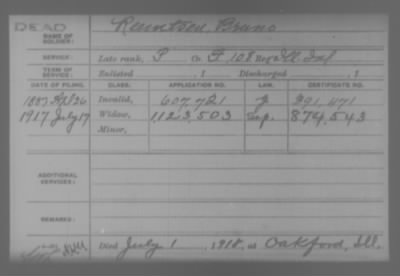 DEAD
NAME OF SOLDIER: Bruno
SERVICE: Late rank, P Co. F, 108 Reg't Ill. Inf
TERM OF SERVICE: Enlisted , 1 Discharged , 1
DATE OF FILING. CLASS. APPLICATION NO. LAW. CERTIFICATE NO.
1887 Apl 26 Invalid, 607,721 391,471
1917 July 17 Widow, 1,123,503 874,543
Minor,
ADDITIONAL SERVICES:
REMARKS:
Died July 1, 1918, at Oakford, Ill.